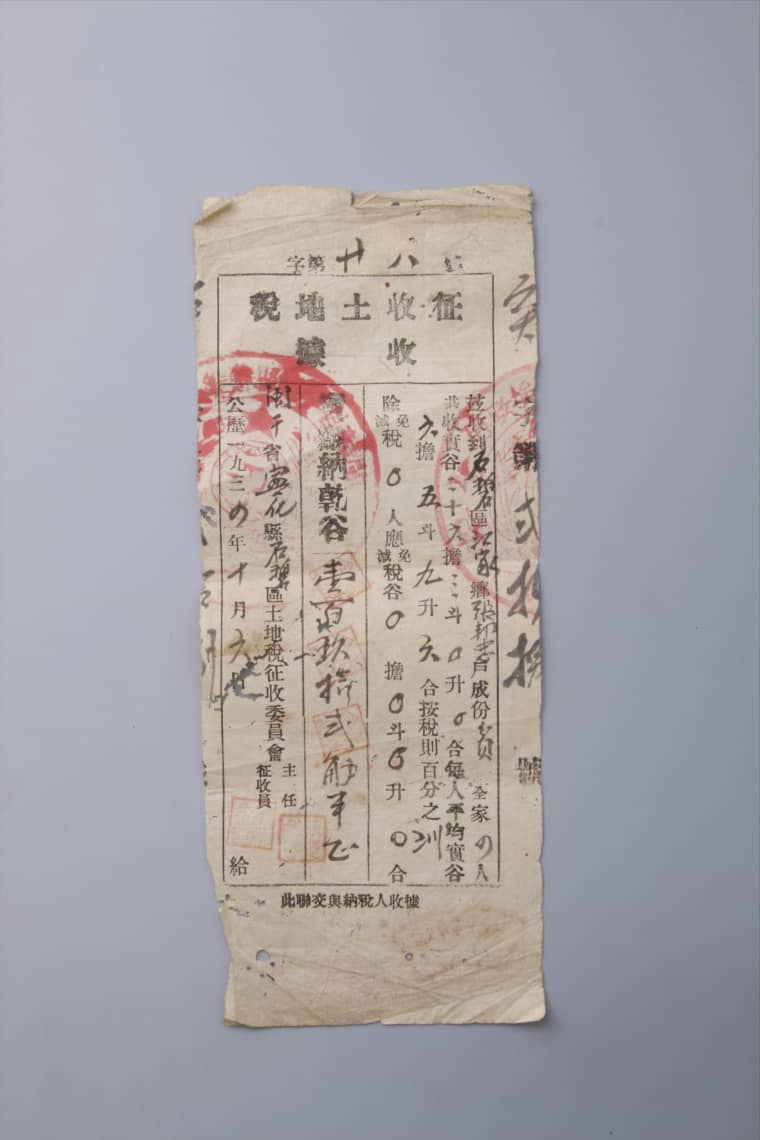 字第廿八
征收土地稅
收據
玆收到石碧區江家鄉張 戶成份貧 全家四人
共收實谷二十六擔三斗〇升〇合每人平均實谷
六擔五斗九升六合按稅則百分之
除免減稅〇人應免減稅谷〇擔〇斗〇升〇合
納乾谷壹百玖拾弍觔半正
閩干省寧化縣石碧區土地稅征收委員會主任征收員
公歷一九三四年十月六日 給
此聯交與納稅人收據
字第弍拾 號